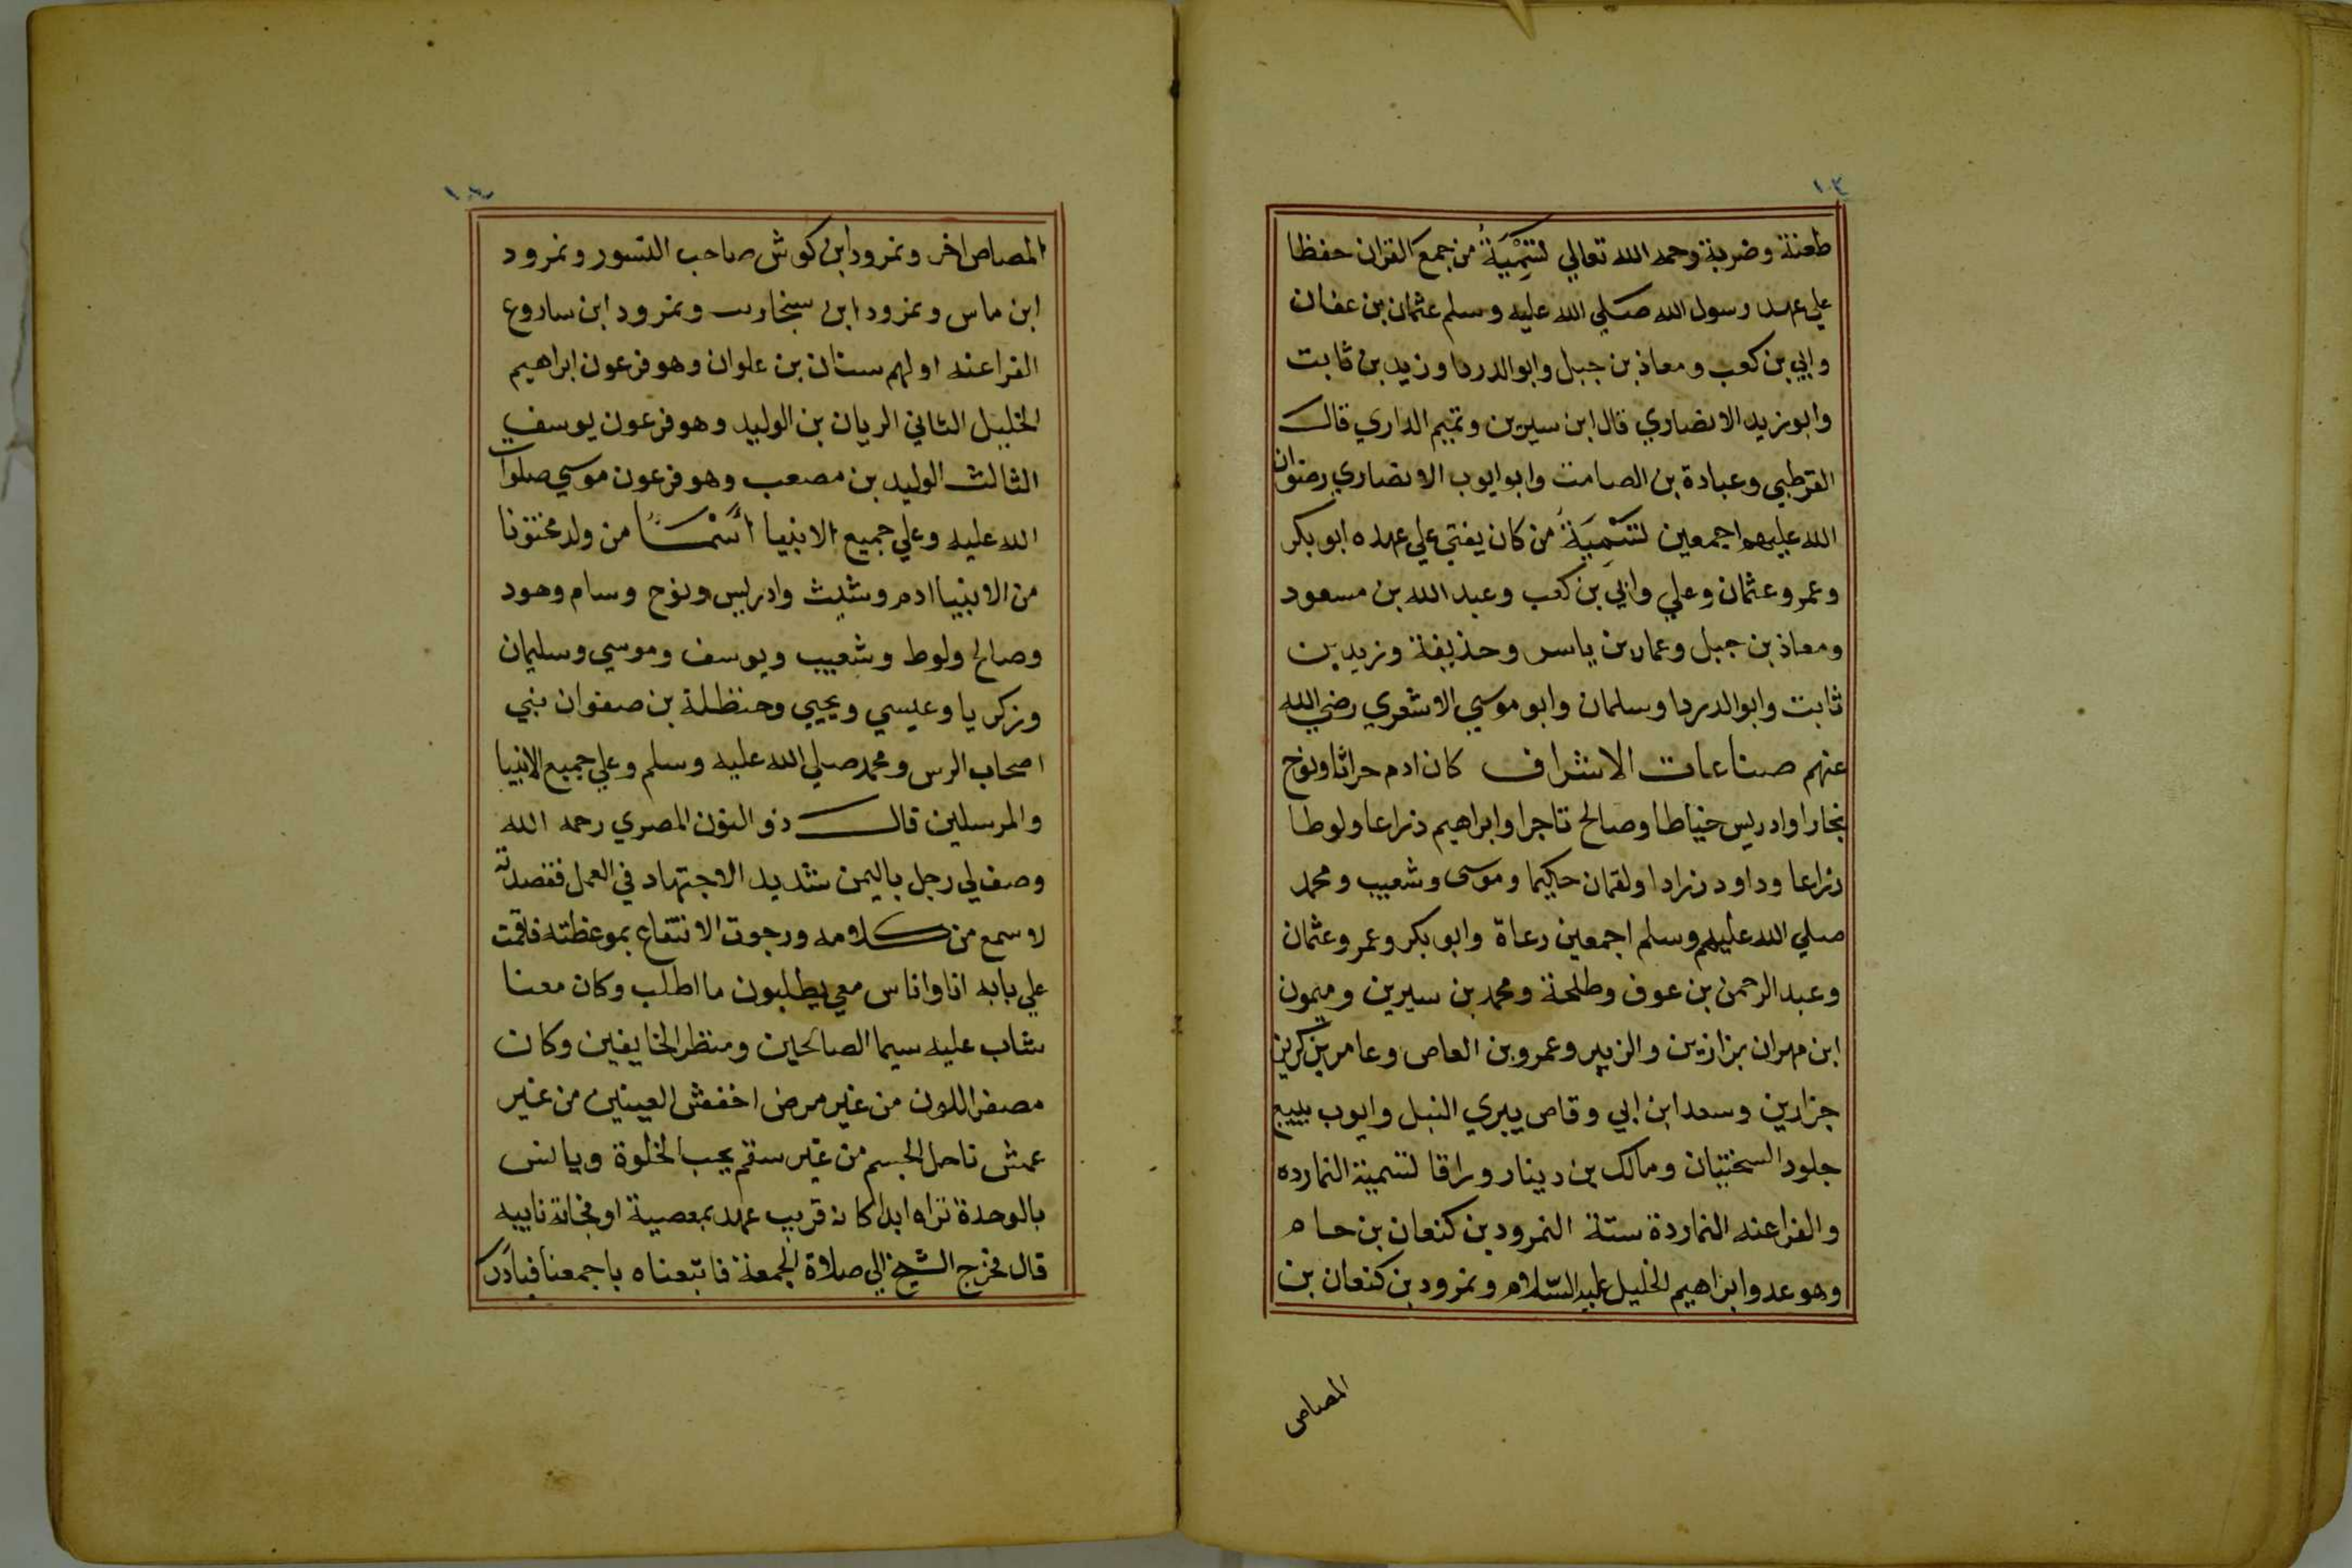 ١٠٢
طعنة وضربة رحمه الله تعالي لتسمية من جمع القران حفظا
علي عهد رسول الله صلي الله عليه وسلم عثمان بن عفان
وابي بن كعب ومعاذ بن جبل وابو الدردا وزيد بن ثابت
وابو زيد الانصاري قال ابن سيرين وتميم الداري قال
القرطبي وعبادة بن الصامت وابو ايوب الانصاري رضوان
الله عليهم اجمعين لتسمية من كان يفتي علي عهده ابو بكر
وعمر وعثمان وعلي وابي بن كعب وعبد الله بن مسعود
ومعاذ بن جبل وعمار بن ياسر وحذيفة وزيد بن
ثابت وابو الدردا وسلمان وابو موسي الاشعري رضي الله
عنهم صناعات الاشراف كان ادم حراثا ونوح
نجارا وادريس خياطا وصالح تاجرا وابراهيم زراعا ولوطا
زراعا وداود زرادا ولقمان حكيما وموسى وشعيب ومحمد
صلي الله عليهم وسلم اجمعين رعاة وابو بكر وعمر وعثمان
وعبد الرحمن بن عوف وطلحة ومحمد بن سيرين وميمون
ابن مهران بزازين والزبير وعمرو بن العاص وعامر بن كريز
جزارين وسعد ابن ابي وقاص يبري النبل وايوب يبيع
جلود السختيان ومالك بن دينار وراقا لتسمية النمارده
والفراعنه النماردة ستة النمرود بن كنعان بن حام
وهو عدو ابراهيم الخليل عليه السلام ونمرود بن كنعان بن
المصاص
المصاص اخر ونمرود ابن كوش صاحب النسور ونمرود
ابن ماس ونمرود ابن سنجارب ونمرود ابن ساروع
الفراعنه اولهم سنان بن علوان وهو فرعون ابراهيم
الخليل الثاني الريان بن الوليد وهو فرعون يوسف
الثالث الوليد بن مصعب وهو فرعون موسي صلوات
الله عليه وعلي جميع الانبيا أسما من ولد مختونا
من الانبيا ادم وشيث وادريس ونوح وسام وهود
وصالح ولوط وشعيب ويوسف وموسي وسليمان
وزكريا وعيسي ويحيي وحنظلة بن صفوان نبي
اصحاب الرس ومحمد صلي الله عليه وسلم وعلي جميع الانبيا
والمرسلين قال ذو النون المصري رحمه الله
وصف لي رجل باليمن شديد الاجتهاد في العمل فقصدته
لاسمع من كلامه ورجوت الانتفاع بموعظته فاقمت
علي بابه انا واناس معي يطلبون ما اطلب وكان معنا
شاب عليه سيما الصالحين ومنظر الخايفين وكان
مصفر اللون من غير مرض اخفش العينين من غير
عمش ناحل الجسم من غير سقم يحب الخلوة ويانس
بالوحدة تراه ابدا كانه قريب عهد بمعصية او
قال فخرج الشيخ الي صلاة الجمعة فاتبعناه باجمعنا فبادر